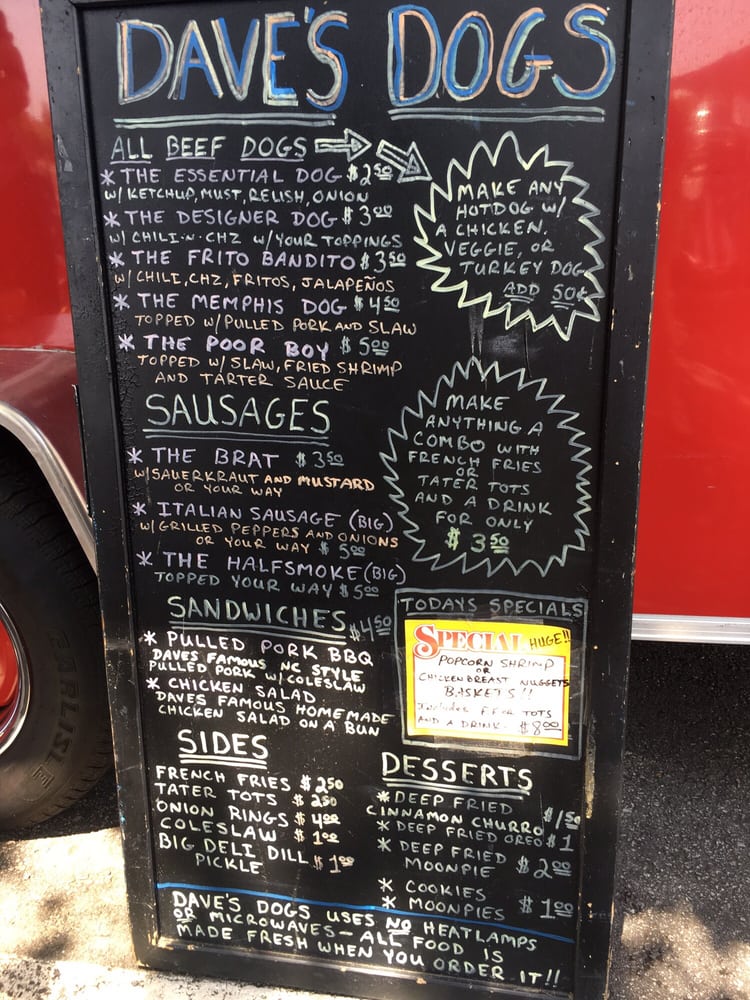 DAVE'S DOGS
ALL BEEF DOGS
* THE ESSENTIAL DOG $2.50
W/ KETCHUP, MUST, RELISH, ONION
* THE DESIGNER DOG $3.00
W/ CHILI-N-CHZ W/YOUR TOPPINGS
* THE FRITO BANDITO $3.50
W/ CHILI, CHZ, FRITOS, JALAPEÑOS
* THE MEMPHIS DOG $4.50
TOPPED W/ PULLED PORK AND SLAW
* THE POOR BOY $5.00
TOPPED W/ SLAW, FRIED SHRIMP
AND TARTER SAUCE
MAKE ANY
HOTDOG W/
A CHICKEN,
VEGGIE, OR
TURKEY DOG
ADD 50¢
SAUSAGES
* THE BRAT $3.50
W/SAUERKRAUT AND MUSTARD
OR YOUR WAY
* ITALIAN SAUSAGE (BIG)
W/ GRILLED PEPPERS AND ONIONS
OR YOUR WAY $5.00
* THE HALFSMOKE (BIG)
TOPPED YOUR WAY $5.00
MAKE
ANYTHING A
COMBO WITH
FRENCH FRIES
OR
TATER TOTS
AND A DRINK
FOR ONLY
$3.50
SANDWICHES $4.50
* PULLED PORK BBQ
DAVES FAMOUS NC STYLE
PULLED PORK W/COLESLAW
* CHICKEN SALAD
DAVES FAMOUS HOMEMADE
CHICKEN SALAD ON A BUN
TODAYS SPECIALS
SPECIAL HUGE!!
POPCORN SHRIMP
OR
CHICKEN BREAST NUGGETS
BASKETS!!
Includes F.F. or TOTS
AND A DRINK. $8.00
SIDES
FRENCH FRIES $2.50
TATER TOTS $2.50
ONION RINGS $4.00
COLESLAW $1.00
BIG DELI DILL
PICKLE $1.00
DESSERTS
* DEEP FRIED
CINNAMON CHURRO $1.50
* DEEP FRIED OREO $1
* DEEP FRIED
MOONPIE $2.00
* COOKIES
* MOONPIES $1.00
DAVE'S DOGS USES NO HEATLAMPS
OR MICROWAVES - ALL FOOD IS
MADE FRESH WHEN YOU ORDER IT!!
CARLISLE